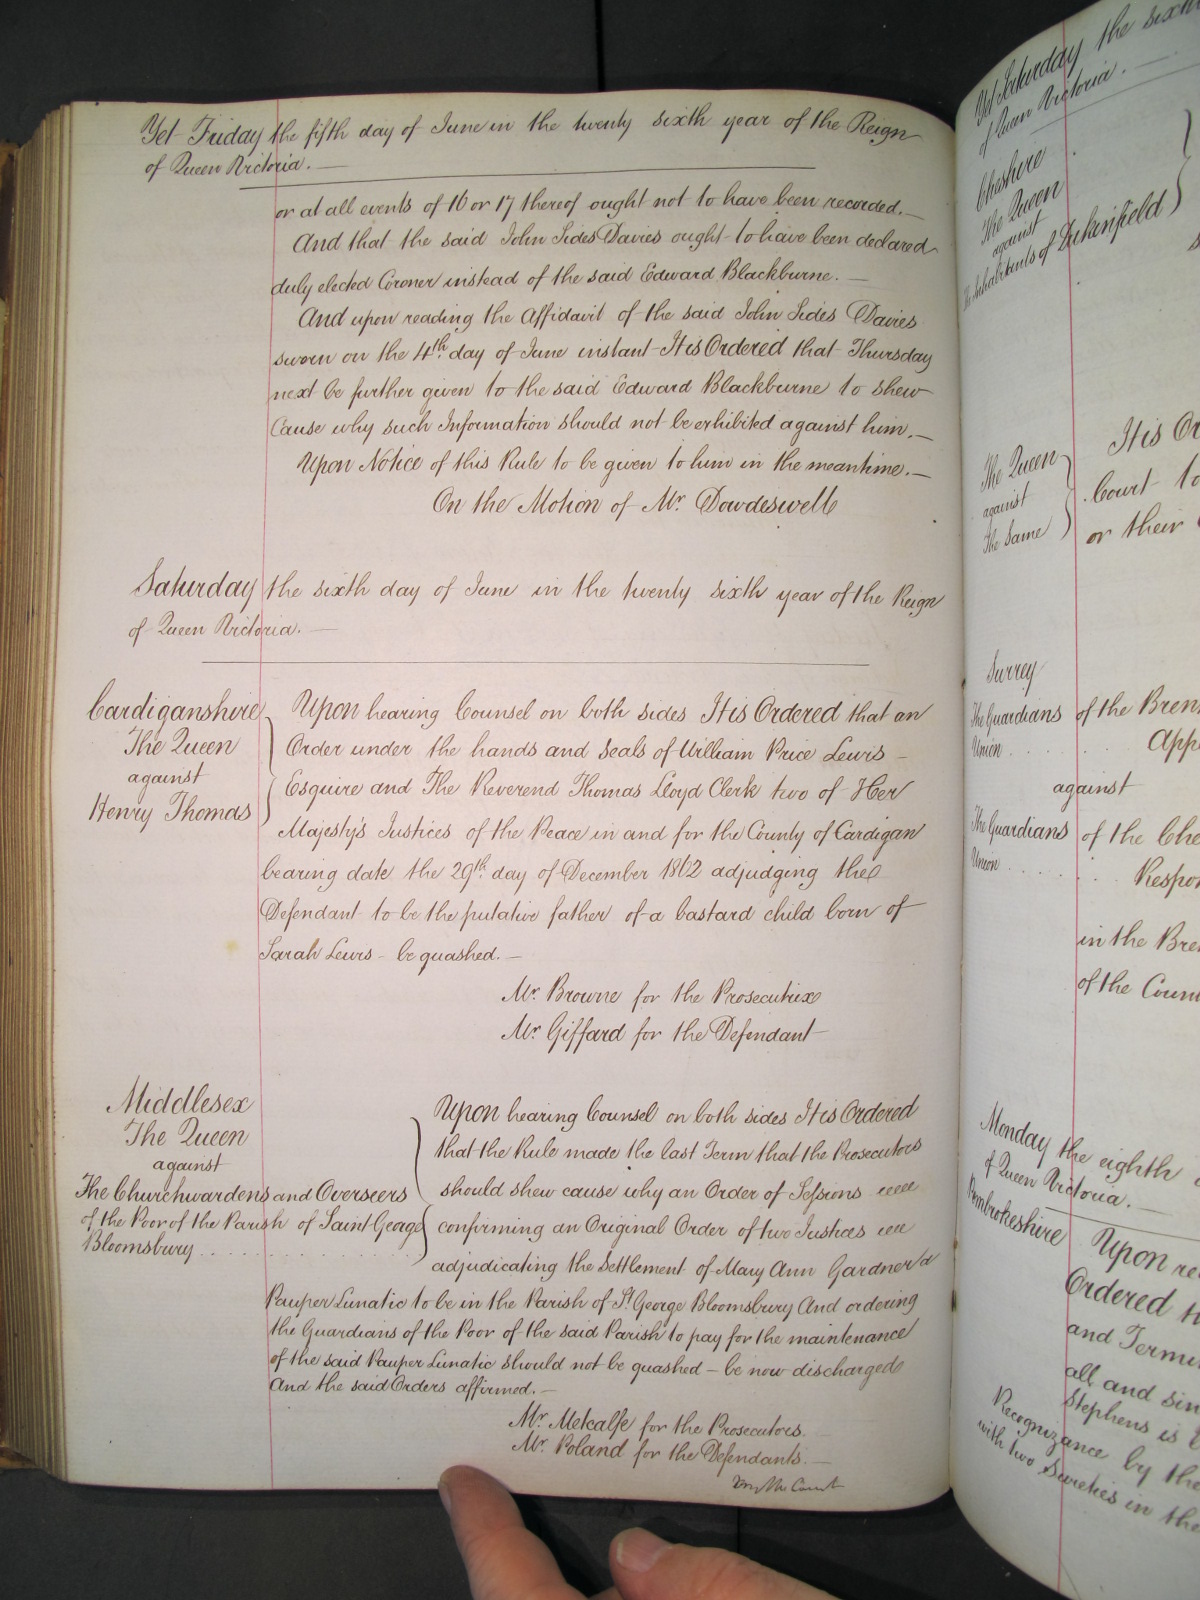 Yet Friday the fifth day of June in the twenty sixth year of the Reign
of Queen Victoria. —
or at all events of 16 or 17 thereof ought not to have been recorded. —
And that the said John Sides Davies ought to have been declared
duly elected Coroner instead of the said Edward Blackburne. —
And upon reading the Affidavit of the said John Sides Davies
sworn on the 4th day of June instant It is Ordered that Thursday
next be further given to the said Edward Blackburne to shew
Cause why such Information should not be exhibited against him. —
Upon Notice of this Rule to be given to him in the meantime. —
On the Motion of Mr. Dowdeswell
Saturday the sixth day of June in the twenty sixth year of the Reign
of Queen Victoria. —
Cardiganshire
The Queen
against
Henry Thomas
Upon hearing Counsel on both sides It is Ordered that an
Order under the hands and Seals of William Price Lewis —
Esquire and The Reverend Thomas Lloyd Clerk two of Her
Majesty's Justices of the Peace in and for the County of Cardigan
bearing date the 29th day of December 1862 adjudging the
Defendant to be the putative father of a bastard child born of
Sarah Lewis - be quashed. —
Mr. Browne for the Prosecutrix
Mr. Giffard for the Defendant
Middlesex
The Queen
against
The Churchwardens and Overseers
of the Poor of the Parish of Saint George
Bloomsbury . . . . . . . . . . . .
Upon hearing Counsel on both sides It is Ordered
that the Rule made the last Term that the Prosecutors
should shew cause why an Order of Sessions
confirming an Original Order of two Justices
adjudicating the Settlement of Mary Ann Gardner a
Pauper Lunatic to be in the Parish of St. George Bloomsbury And ordering
the Guardians of the Poor of the said Parish to pay for the maintenance
of the said Pauper Lunatic should not be quashed — be now discharged
And the said Orders affirmed. —
Mr. Metcalfe for the Prosecutors.
Mr. Poland for the Defendants. —
By the Court
Yet Saturday the sixth
of Queen Victoria. —
Cheshire
The Queen
against
The Inhabitants of Dukinfield
It is
The Queen
against
The Same
Court to
or their
Surrey
The Guardians of the
Union . . . . . .
against
The Guardians of the
Union . . . . . .
in the
of the
Monday the eighth
of Queen Victoria. —
Pembrokeshire
Upon
Ordered
and
all and
Stephens is
Recognizance by the
with two Sureties in the